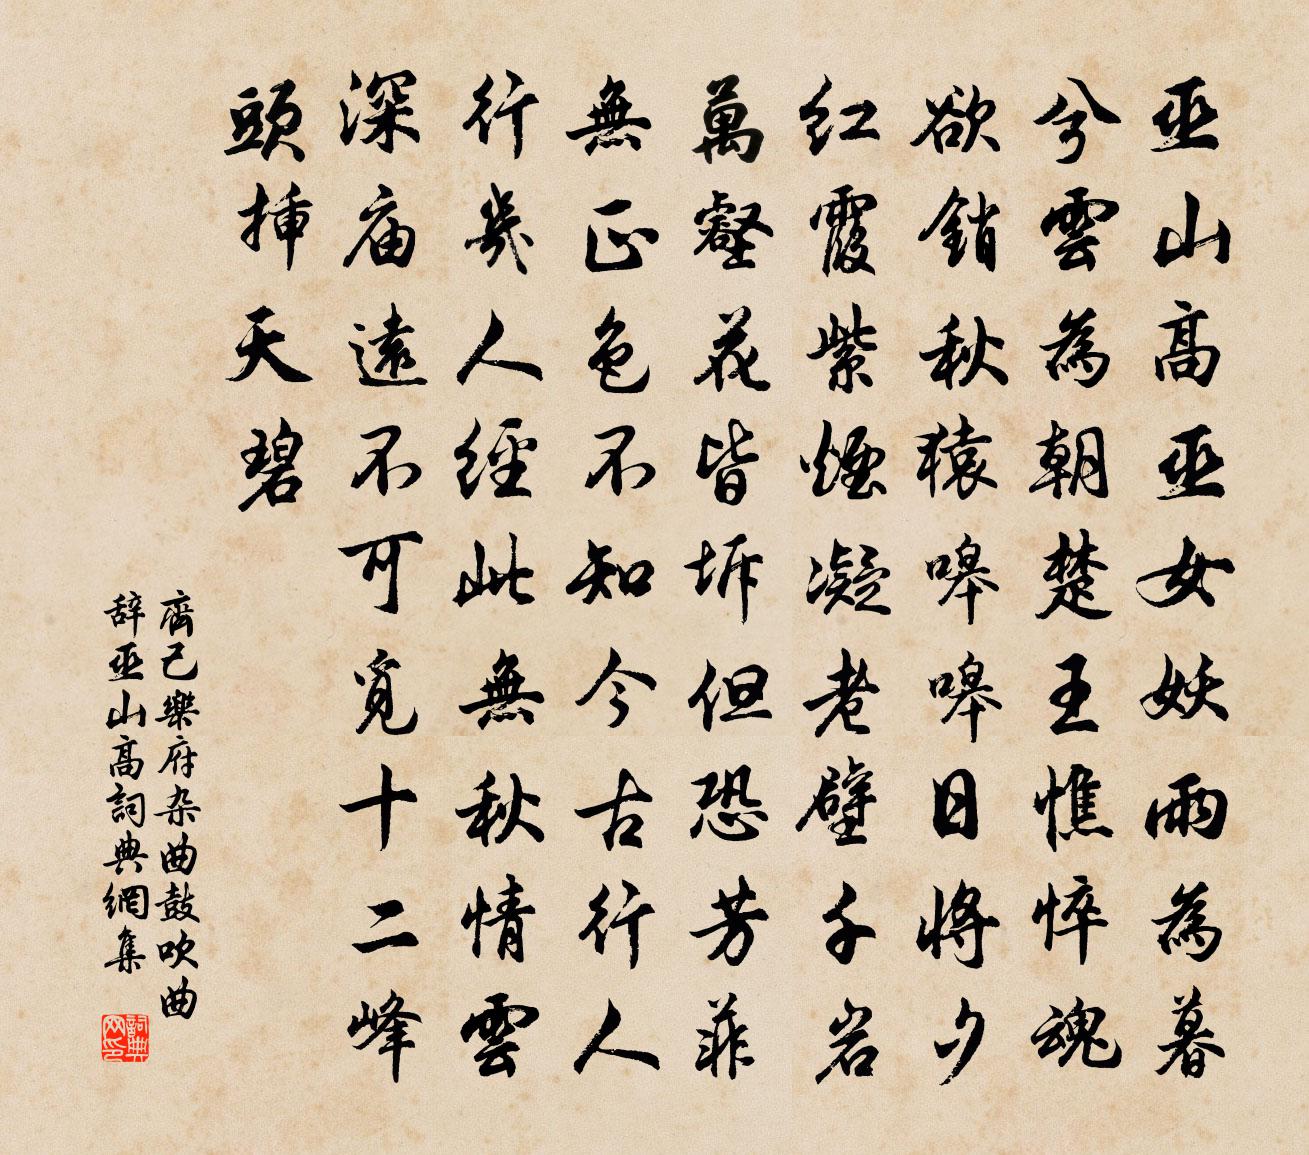 巫山高巫女妖雨為暮
兮雲為朝楚王憔悴魂
欲銷秋猿嗥嗥日將夕
紅霞紫煙凝老壁千岩
萬壑花皆坼但恐芳菲
無正色不知今古行人
行幾人經此無秋情雲
深庙遠不可覓十二峰
頭插天碧
齊己樂府杂曲鼓吹曲
辞巫山高詞典網集
詞典网印